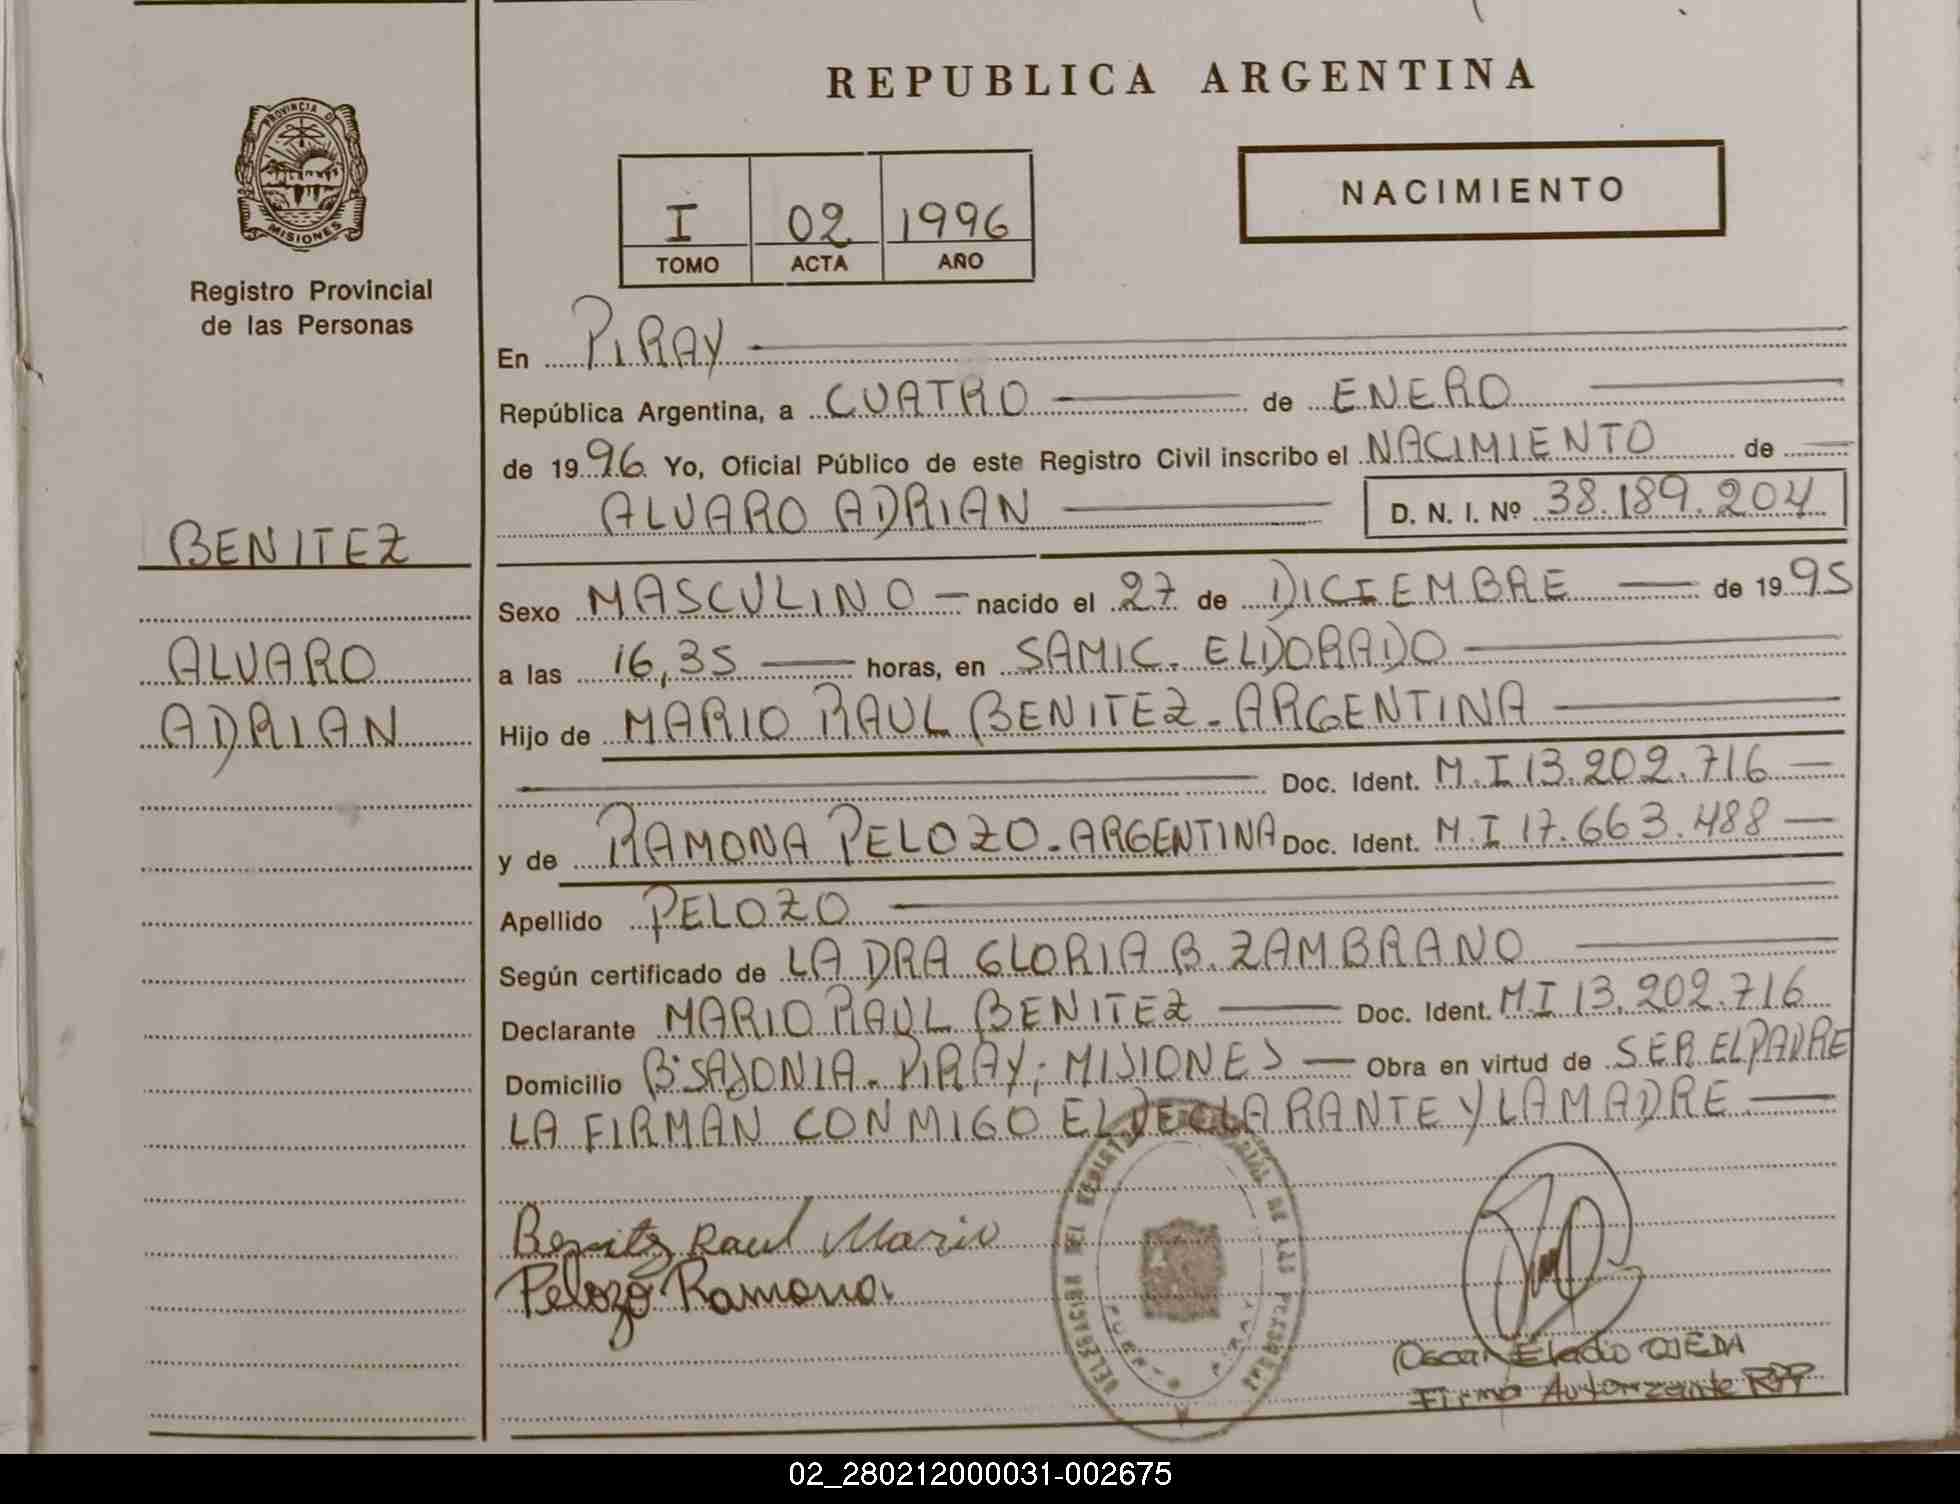 REPUBLICA ARGENTINA
PROVINCIA DE
MISIONES
Registro Provincial
de las Personas
NACIMIENTO
I 02 1996
TOMO ACTA AÑO
BENITEZ
ALVARO
ADRIAN
En PIRAY
República Argentina, a CUATRO de ENERO
de 1996 Yo, Oficial Público de este Registro Civil inscribo el NACIMIENTO de
ALVARO ADRIAN D. N. I. Nº 38.189.204
Sexo MASCULINO nacido el 27 de DICIEMBRE de 1995
a las 16,35 horas, en SAMIC. ELDORADO
Hijo de MARIO RAUL BENITEZ. ARGENTINA
Doc. Ident. M.I 13.202.716
y de RAMONA PELOZO. ARGENTINA Doc. Ident. M.I 17.663.488
Apellido PELOZO
Según certificado de LA DRA GLORIA B. ZAMBRANO
Declarante MARIO RAUL BENITEZ Doc. Ident. M I 13.202.716
Domicilio Bº SAJONIA. PIRAY; MISIONES Obra en virtud de SER EL PADRE
LA FIRMAN CONMIGO EL DECLARANTE Y LA MADRE
Benitz Raul Mario
Pelozo Ramona.
DELEGACION DEL REGISTRO DE LAS PERSONAS
PIRAY
Oscar Eladio OJEDA
Firma Autorizante RPP
02_280212000031-002675